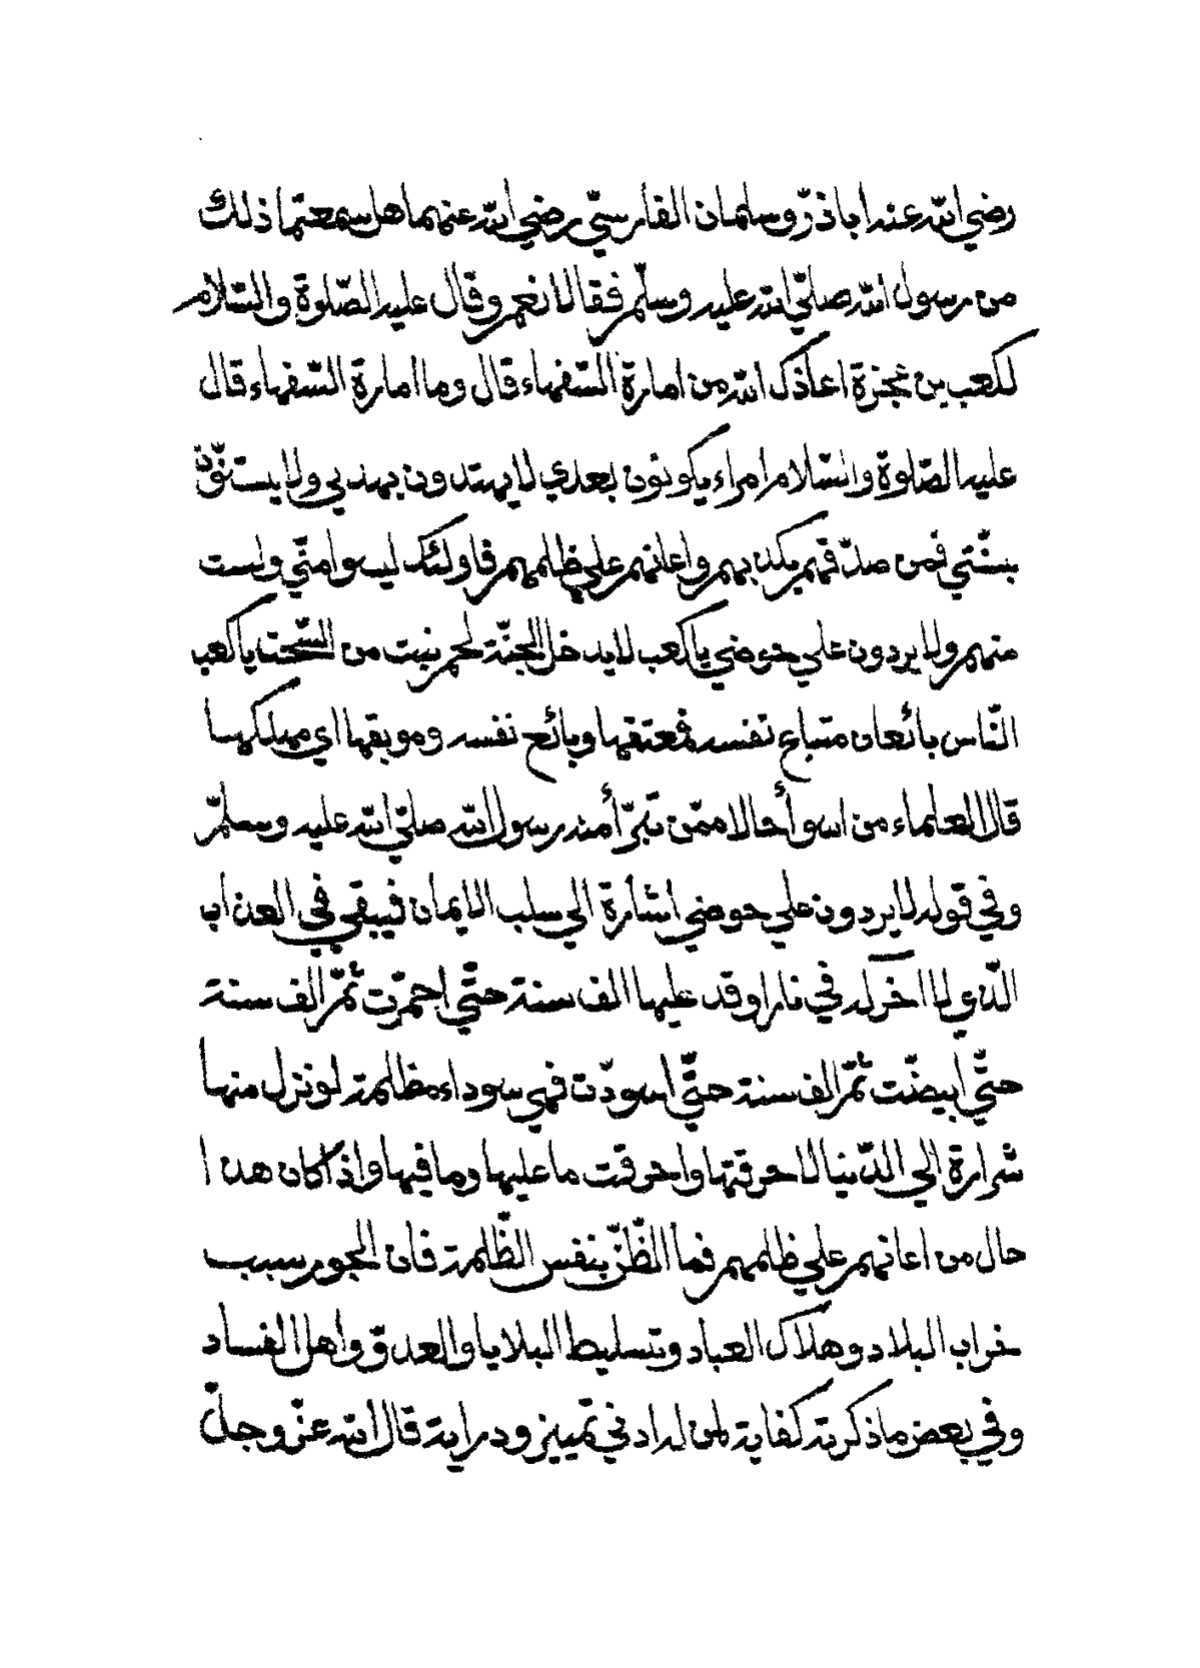 رضي الله عنه اباذرّ وسلمان الفارسيّ رضي الله عنهما هل سمعتما ذلك
من رسول الله صلّي الله عليه وسلّم فقالا نعم وقال عليه الصّلوة والسّلام
لكعب بن عجزة اعاذك الله من امارة السّفهاء قال وما امارة السّفهاء قال
عليه الصّلوة والسّلام امراء يكونون بعدي لا يهتدون بهديي ولا يستنّون
بسنّتي فمن صدّقهم بكذبهم واعانهم علي ظلمهم فاولئك ليسوا منّي ولست
منهم ولا يردون علي حوضي يا كعب لا يدخل الجنّة لحم نبت من السّحت يا كعب
النّاس بائعان مبتاع نفسه فمعتقها وبائع نفسه وموبقها اي مهلكها
قال العلماء من اسوأ حالا ممّن تبرّأ منه رسول الله صلّي الله عليه وسلّم
وفي قوله لا يردون علي حوضي اشارة الي سلب الايمان فيبقي في العذاب
الّذي لا اخر له في نار اوقد عليها الف سنة حتّي احمرّت ثمّ الف سنة
حتّي ابيضّت ثمّ الف سنة حتّي اسودّت فهي سوداء مظلمة لو نزل منها
شرارة الي الدّنيا لاحرقتها واحرقت ما عليها وما فيها واذا كان هذا
حال من اعانهم علي ظلمهم فما الظّنّ بنفس الظّلمة فان الجور سبب
خراب البلاد وهلاك العباد وتسليط البلايا والعدوّ واهل الفساد
وفي بعض ما ذكرته كفاية لمن له ادني تمييز ودراية قال الله عزّ وجلّ